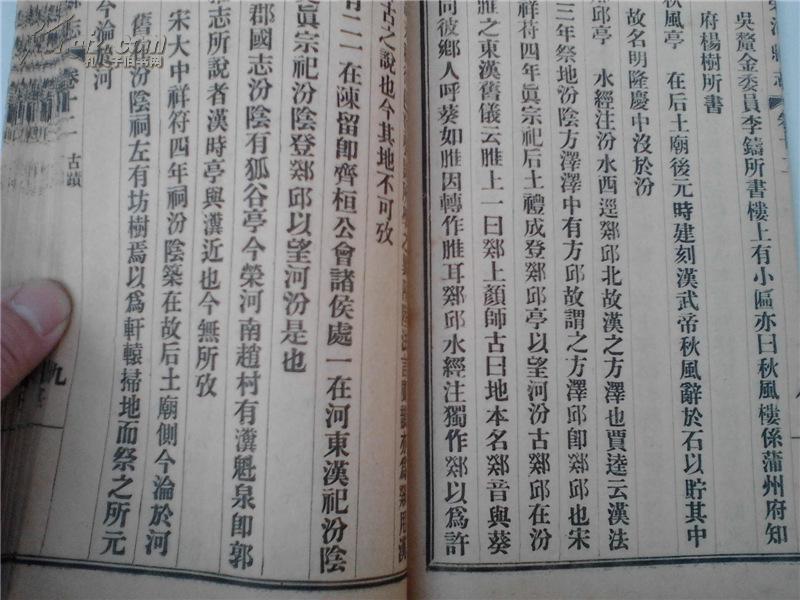 吳釐金委員李鑄所書樓上有小匾亦曰秋風樓係蒲州府知
府楊樹所書
秋風亭 在后土廟後元時建刻漢武帝秋風辭於石以貯其中
故名明隆慶中沒於汾
鄈邱亭 水經注汾水西逕鄈邱北故漢之方澤也賈逵云漢法
三年祭地汾陰方澤澤中有方邱故謂之方澤邱卽鄈邱也宋
祥符四年眞宗祀后土禮成登鄈邱亭以望河汾古鄈邱在汾
脽之東漢舊儀云脽上一曰鄈上顏師古曰地本名鄈音與葵
同彼鄉人呼葵如脽因轉作脽耳鄈邱水經注獨作鄈以爲許
古之說也今其地不可攷
有二一在陳留卽齊桓公會諸侯處一在河東漢祀汾陰
眞宗祀汾陰登鄈邱以望河汾是也
郡國志汾陰有狐谷亭今榮河南趙村有瀵魁泉卽郭
志所說者漢時亭與瀵近也今無所攷
宋大中祥符四年祠汾陰築在故后土廟側今淪於河
舊汾陰祠左有坊樹焉以爲軒轅掃地而祭之所元
今淪於河
卷十二 古蹟
九